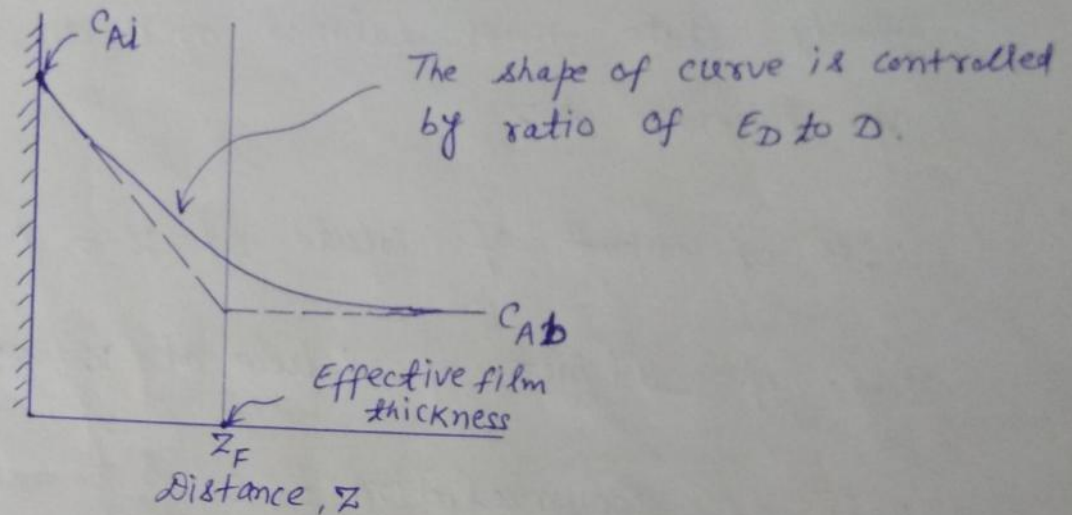 C_Ai
The shape of curve is controlled
by ratio of E_D to D.
C_Ab
Effective film
thickness
Z_F
Distance, Z